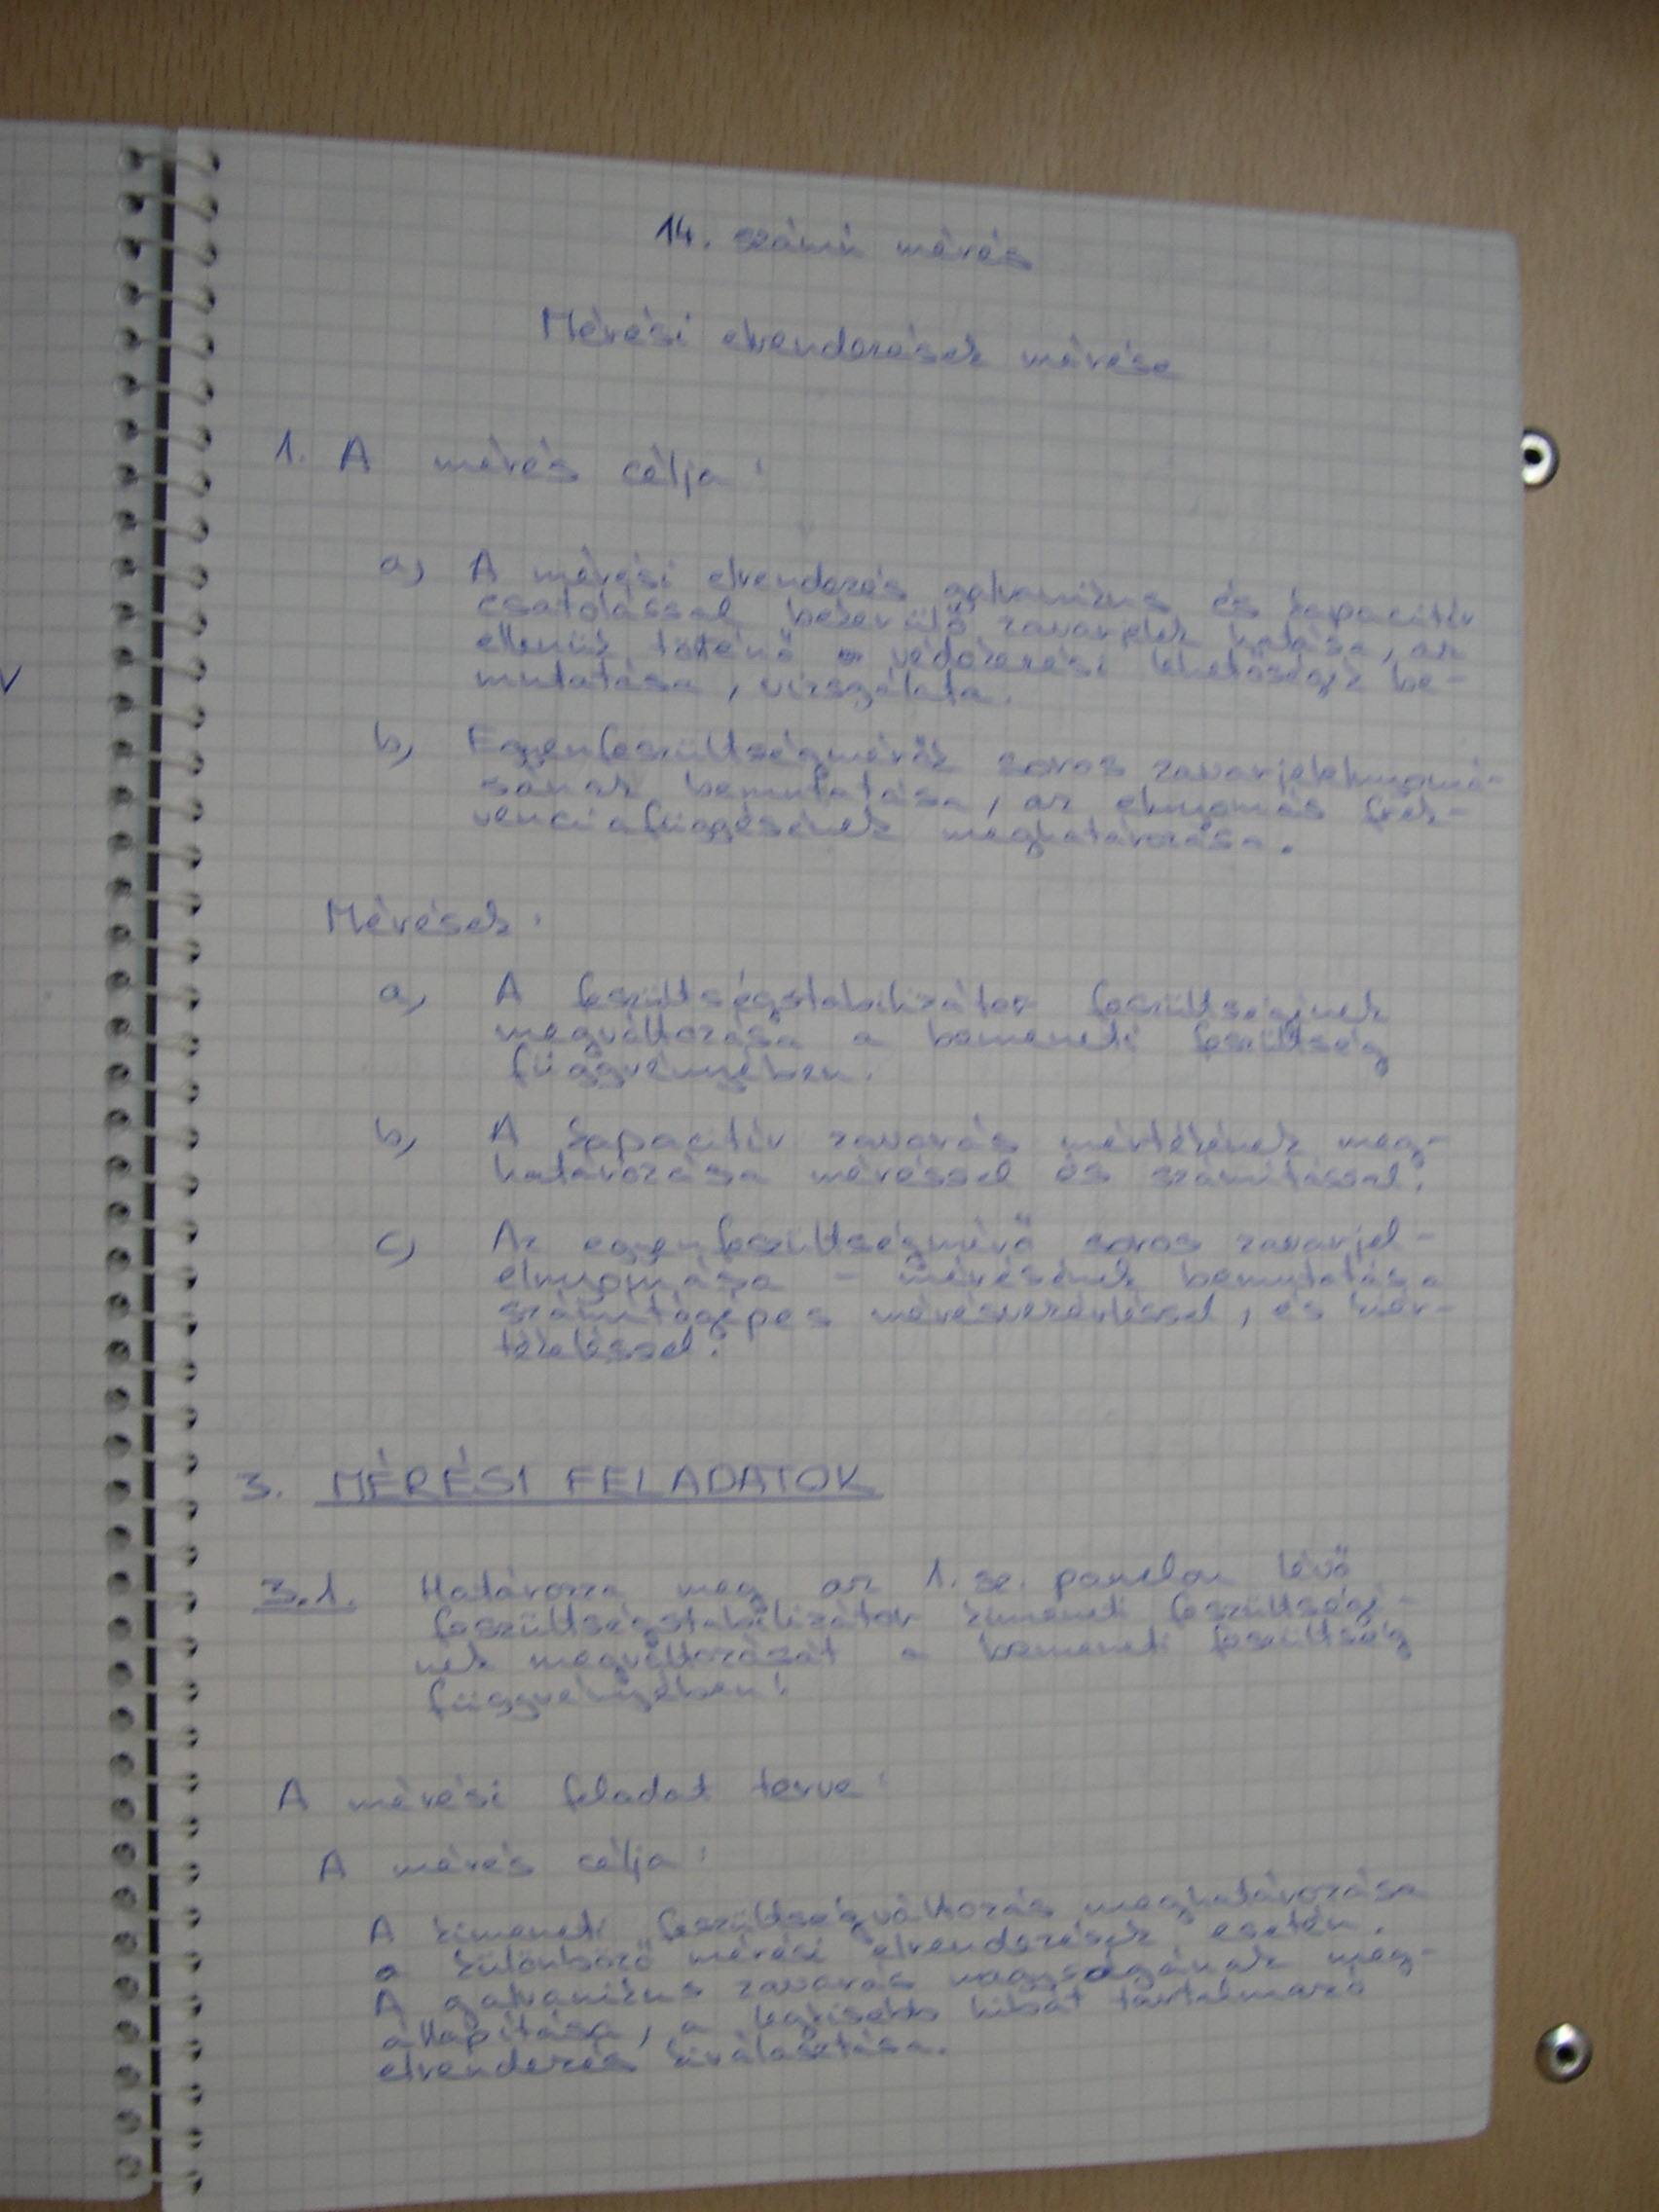 14. számú mérés
Mérési elrendezések mérése
1. A mérés célja:
a) A mérési elrendezés galvanikus és kapacitív
csatolással bekerülő zavarjelek hatása, az
ellenük történő védekezési lehetőségek be-
mutatása, vizsgálata.
b) Egyenfeszültségmérők soros zavarjelelnyomá-
sának bemutatása, az elnyomás frek-
venciafüggésének meghatározása.
Mérések:
a) A feszültségstabilizátor feszültségének
megváltozása a bemeneti feszültség
függvényében.
b) A kapacitív zavarás mértékének meg-
határozása méréssel és számítással.
c) Az egyenfeszültségmérő soros zavarjel-
elnyomása - mérésének bemutatása
számítógépes mérésvezérléssel, és kiér-
tékeléssel.
3. MÉRÉSI FELADATOK
3.1. Határozza meg az 1. sz. panelon lévő
feszültségstabilizátor kimeneti feszültségé-
nek megváltozását a bemeneti feszültség
függvényében!
A mérési feladat terve:
A mérés célja:
A kimeneti feszültségváltozás meghatározása
a különböző mérési elrendezések esetén.
A galvanikus zavarás nagyságának meg-
állapítása, a legkisebb hibát tartalmazó
elrendezés kiválasztása.